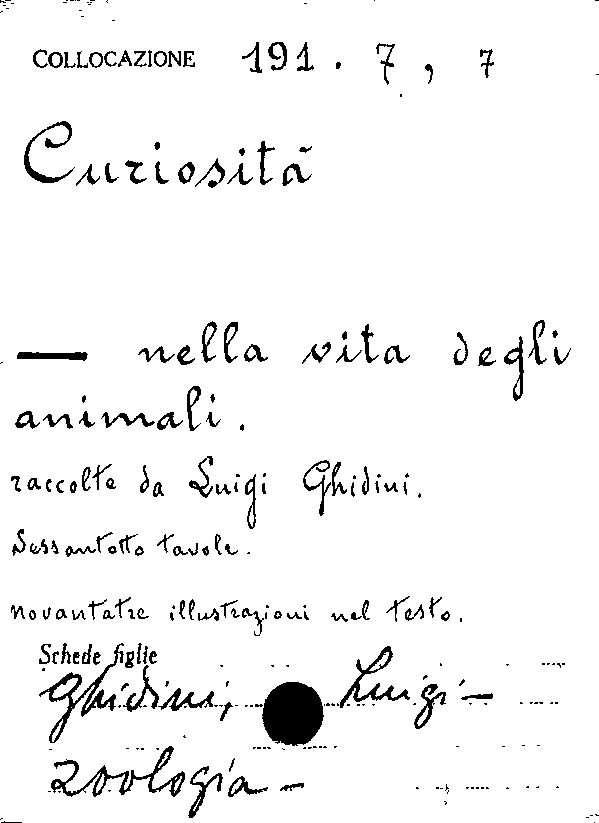 COLLOCAZIONE 191. 7, 7
Curiosità
— nella vita degli
animali.
raccolte da Luigi Ghidini.
Sessantotto tavole.
novantatre illustrazioni nel testo.
Schede figlie
Ghidini, Luigi —
zoologia —